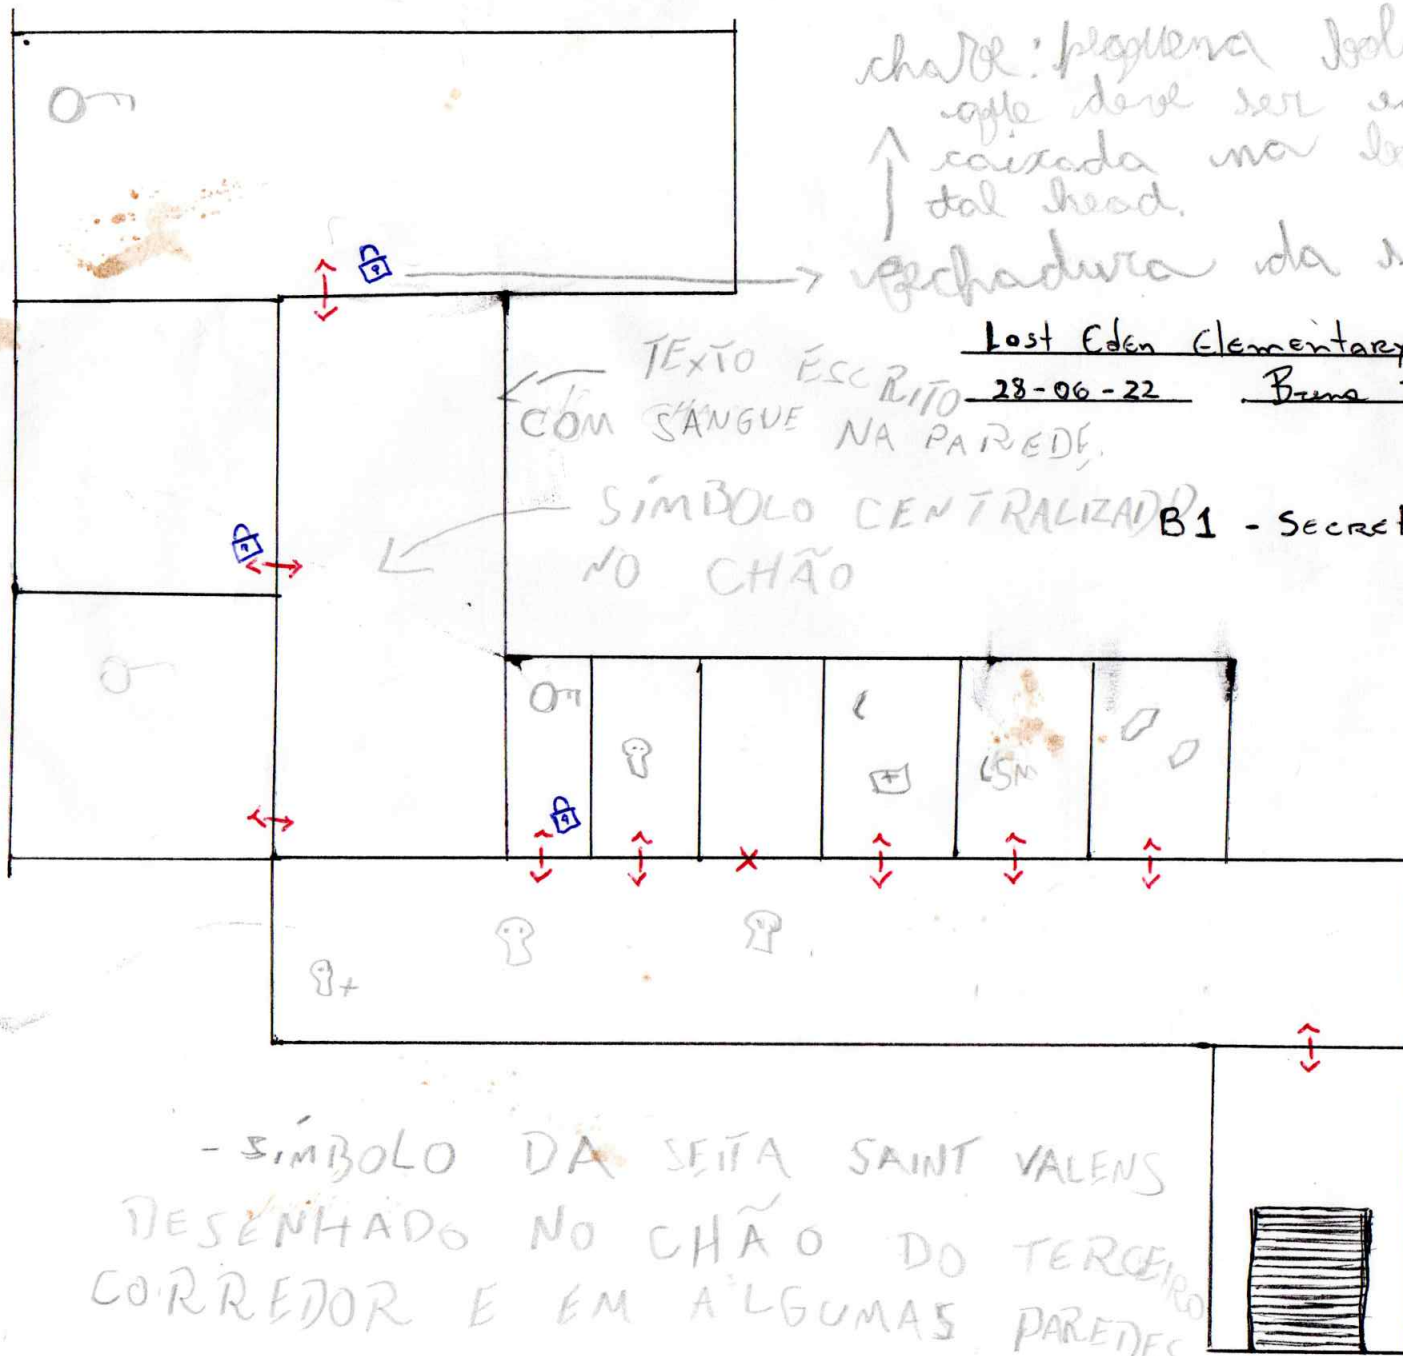 chave: pequena
que deve ser
caixada na
tal head.
fechadura da
Lost Eden Elementary
28-06-22
TEXTO ESCRITO
COM SANGUE NA PAREDE.
SÍMBOLO CENTRALIZADO
NO CHÃO
B1 - SECRET
SM
- SÍMBOLO DA SEITA SAINT VALENS
DESENHADO NO CHÃO DO TERCEIRO
CORREDOR E EM ALGUMAS PAREDES